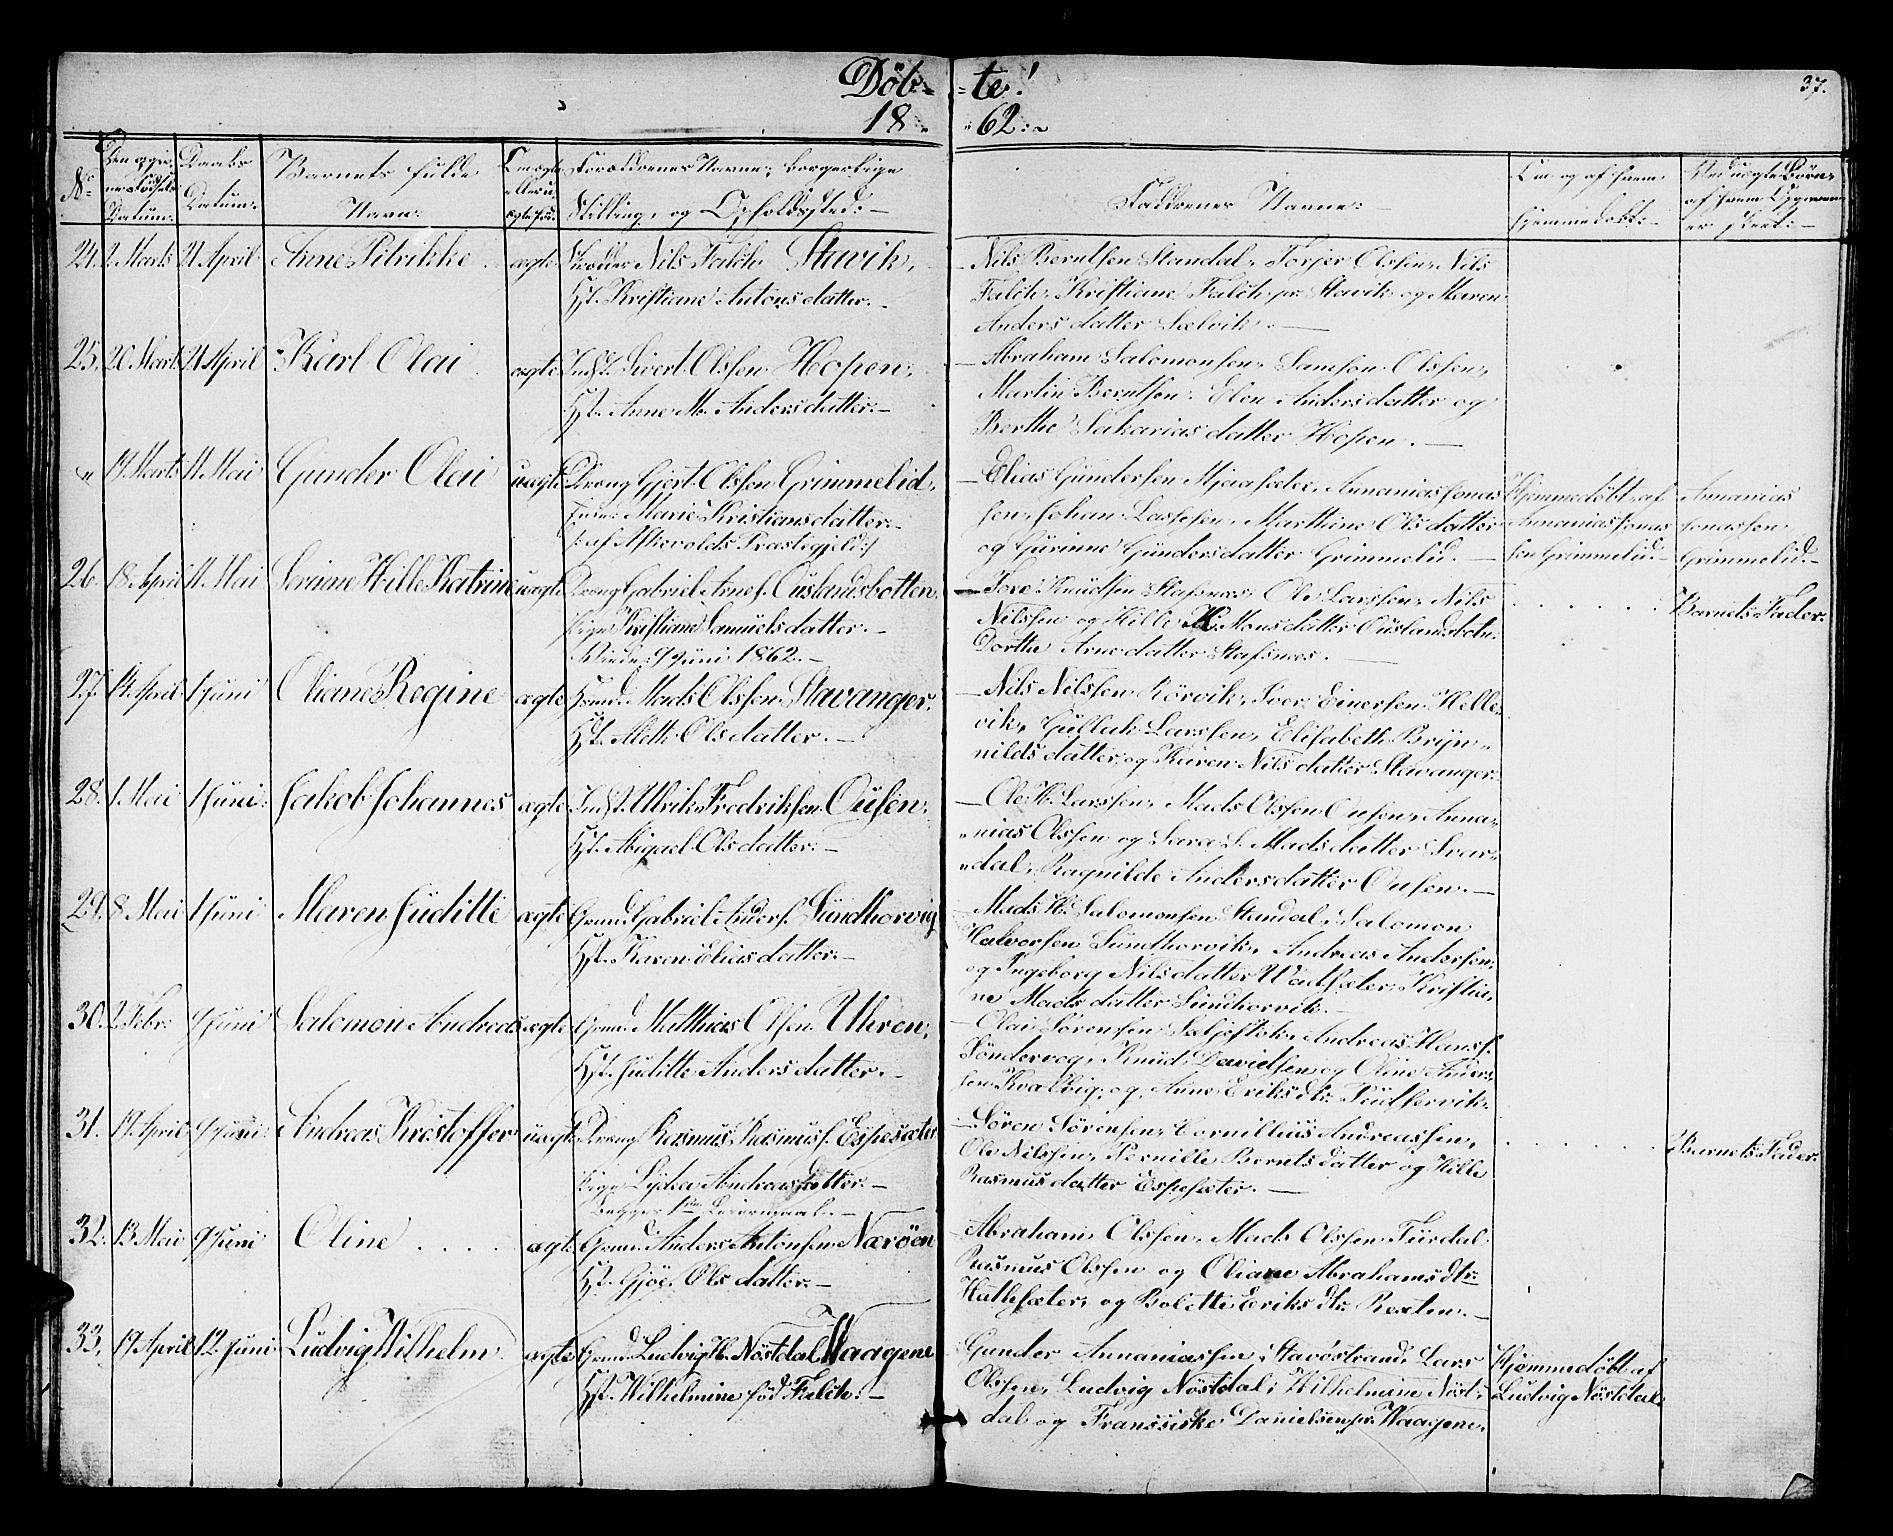 Døb- -te!
37.
18- -62:~
No
Den opgivne Fødsels Datum:
Daabs Datum:
Barnets fulde Navn:
Om ægte eller uægte fød.
Forældrenes Navne, borgerlige Stilling, og Opholdsted:-
Faddrenes Navne:
Om og af hvem hjemmedøbt:-
Ved uægte Børn, af hvem er skeet:-
24. 2. Marts 21 April Anne Petrikke ægte Nils Falch Stavik,
Hst. Kristiane Antonsdatter.-
Nils Berntsen Standal, Torjer Olssen, Nils
Falch, Kristiane Falch pr. Stavik og Maren
Andersdatter Sælvik.-
25. 20 Mart 21 April Karl Olai ægte Indst. Sivert Olssen Hopen,
Hst. Anne M. Andersdatter:-
Abraham Salomonsen, Samson Olssen,
Martin Berntsen, Elen Andersdatter og
Berthe Sakariasdatter Hopen.-
" 19 Marts 11 Mai Gunder Olai uægte Dreng Gjert Olssen Grimmelid,
Marie Kristiansdatter.-
/: af Askevolds Præstegjeld:/
Elias Gundersen Mjæasæter, Annanias Jonas-
sen, Johan Lassesen, Marthine Olsdatter
og Gurinne Gundersdatter Grimmelid.-
Hjemmedøbt af
Annanias Jonas
sen Grimmelid.-
Annanias
Jonassen
Grimmelid.-
26. 18. April 11. Mai Serine Hille Katrine uægte Dreng Gabriel Arnes. Ouslandsbotten.
Pige Kristiane Samuelsdatter.-
9 Juni 1862.-
Tore Knudsen Stafsnæs, Ole Larssen, Nils
Nilssen og Hille K. Monsdatter Ouslandsbotn.
Dorthe Arnedatter Stafsnes.-
Barnets Fader.
27. 14. April 1 Juni Oliane Regine ægte Gmd. Mads Olssen Stavanger.
Hst. Meth. Olsdatter.-
Nils Nilssen Rörvik, Iver Einersen Helle-
vik, Gullak Larssen, Elisabeth Bryn-
nildsdatter, og Karen Nilsdatter Stavanger.
28. 1 Mai 1 Juni Jakob Johannes ægte Indst. Ulrik Fredriksen Ousen,
Hst. Abigael Olsdatter:-
Ole K. Larssen, Mads Olssen Ousen, Anna-
nias Olssen og Sara S. Madsdatter Svar-
dal, Ragnilde Andersdatter Ousen.-
29. 8 Mai 1 Juni Maren Juditte ægte Gmd. Gabriel Anders. Sundhorvig
Hst. Karen Eliasdatter.-
Mads H. Salomonsen Standal, Salomon
Halvorsen Sundhorvik, Andreas Andersen,
og Ingeborg Nilsdatter Vadsæter, Kristia-
ne Madsdatter Sundhorvik.-
30. 2. Febr. 9 Juni Salomon Andreas ægte Gmd. Matthias Olsen Uhren,
Hst. Juditte Andersdatter.-
Olai Sørensen Saljestok, Andreas Hanss.
Söndervog, Knud Davidsen og Oline Anders-
sen Kvalvig, og Anne Eriksdtr.
31. 19. April 9 Juni Andreas Kristoffer uægte Dreng Rasmus Rasmuss. Espesæter
Pige Lydia Andreasdatter.-
Begges 1ste Leiermaal.-
Søren Sørensen, Cornillius Andreassen,
Ole Nilssen, Pernille Berntsdatter og Hille
Rasmusdatter Espesæter.-
Barnets Fader.
32. 13 Mai 9 Juni Oline ægte Gmd. Anders Antonsen Nærøen
Hst. Gjøe. Olsdatter.-
Abraham Olssen, Mads Olssen Furdal
Rasmus Olssen og Oliane Abrahamsdtr.
Hathesæter, og Bolette Eriksdtr.
33. 19 April 12. Juni Ludvig Wilhelm ægte Gmd. Ludvig H. Nøstdal Waagene
Hst. Wilhelmine fød Falch:-
Gunder Annaniassen Stavöstrand, Lars
Olssen, Ludvig Nøstdal, Wilhelmine Nøst-
dal og Franssiske Danielsen pr. Waagene.
Hjemmedöbt af
Ludvig Nøstdal.